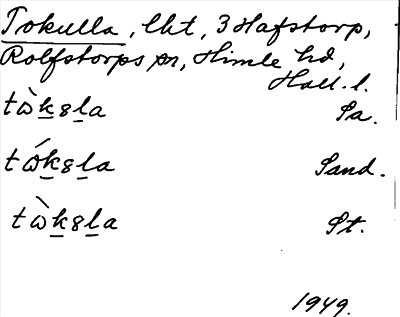 Tokulla, lht, 3 Hafstorp,
Rolfstorps sn, Himle hd,
Hall. l.
tὼk̲8l̲a Sa.
tώk̲8l̲a Sand.
tὼk̲8l̲a St.
1949.